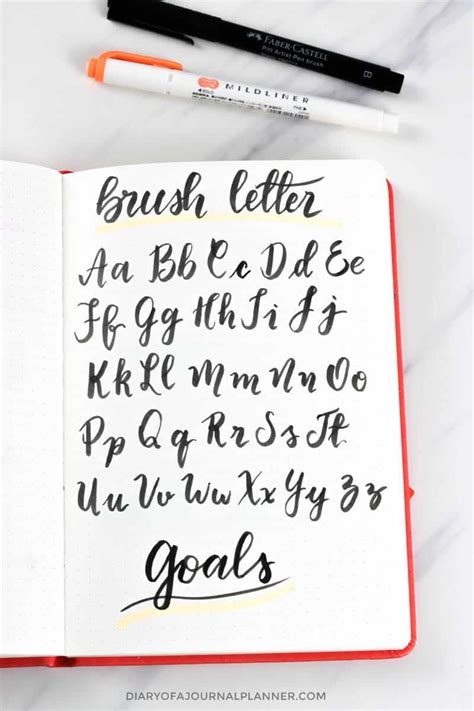 FABER-CASTELL
Pitt Artist Pen brush
B
MILDLINER
FINE
brush letter
Aa Bb Cc Dd Ee
Ff Gg Hh Ii Jj
Kk Ll Mm Nn Oo
Pp Qq Rr Ss Tt
Uu Vv Ww Xx Yy Zz
goals
DIARYOFAJOURNALPLANNER.COM